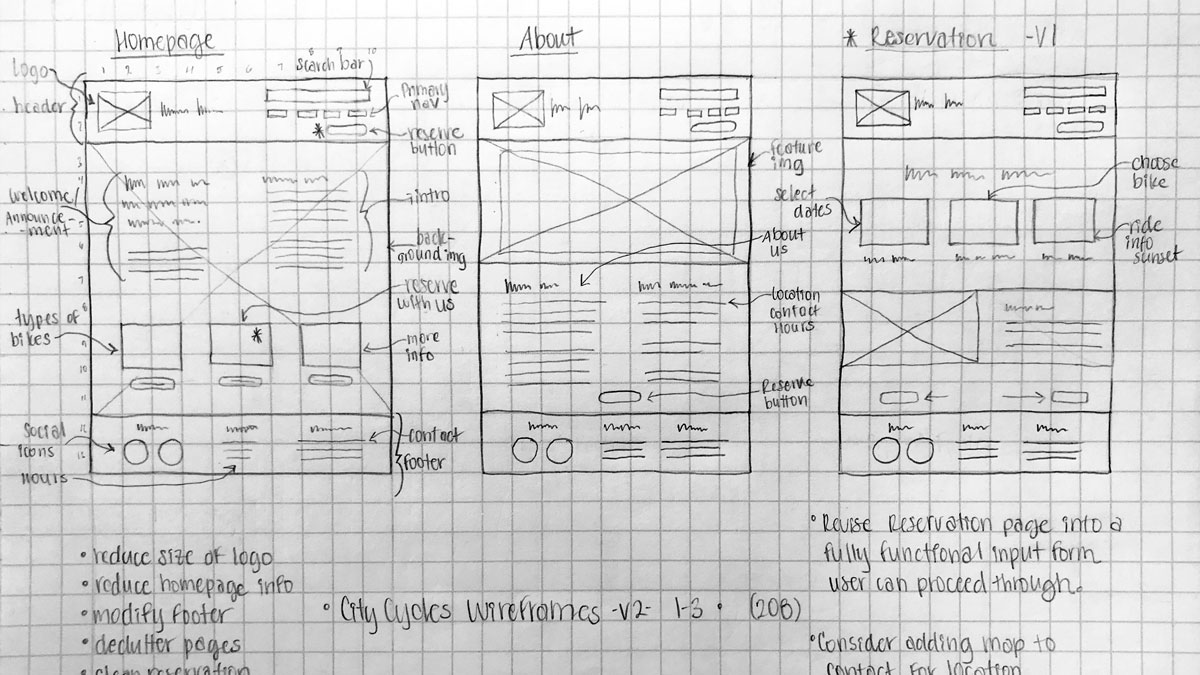 Homepage
About
* Reservation -V1
logo
header
1 2 3 4 5 6 7 8 9 10
search bar
primary
nav
*
reserve
button
1
2
3
4
5
6
7
8
9
10
11
12
welcome/
Announce-
-ment
intro
back-
ground img
reserve
with us
types of
bikes
*
more
info
social
icons
Hours
contact
footer
feature
img
About
us
location
contact
Hours
Reserve
button
select
dates
choose
bike
ride
info
sunset
• reduce size of logo
• reduce homepage info
• modify footer
• declutter pages
• clean reservation
• City Cycles Wireframes -V2- 1-3 • (208)
• Revise Reservation page into a
fully functional input form
user can proceed through.
• Consider adding map to
contact for location